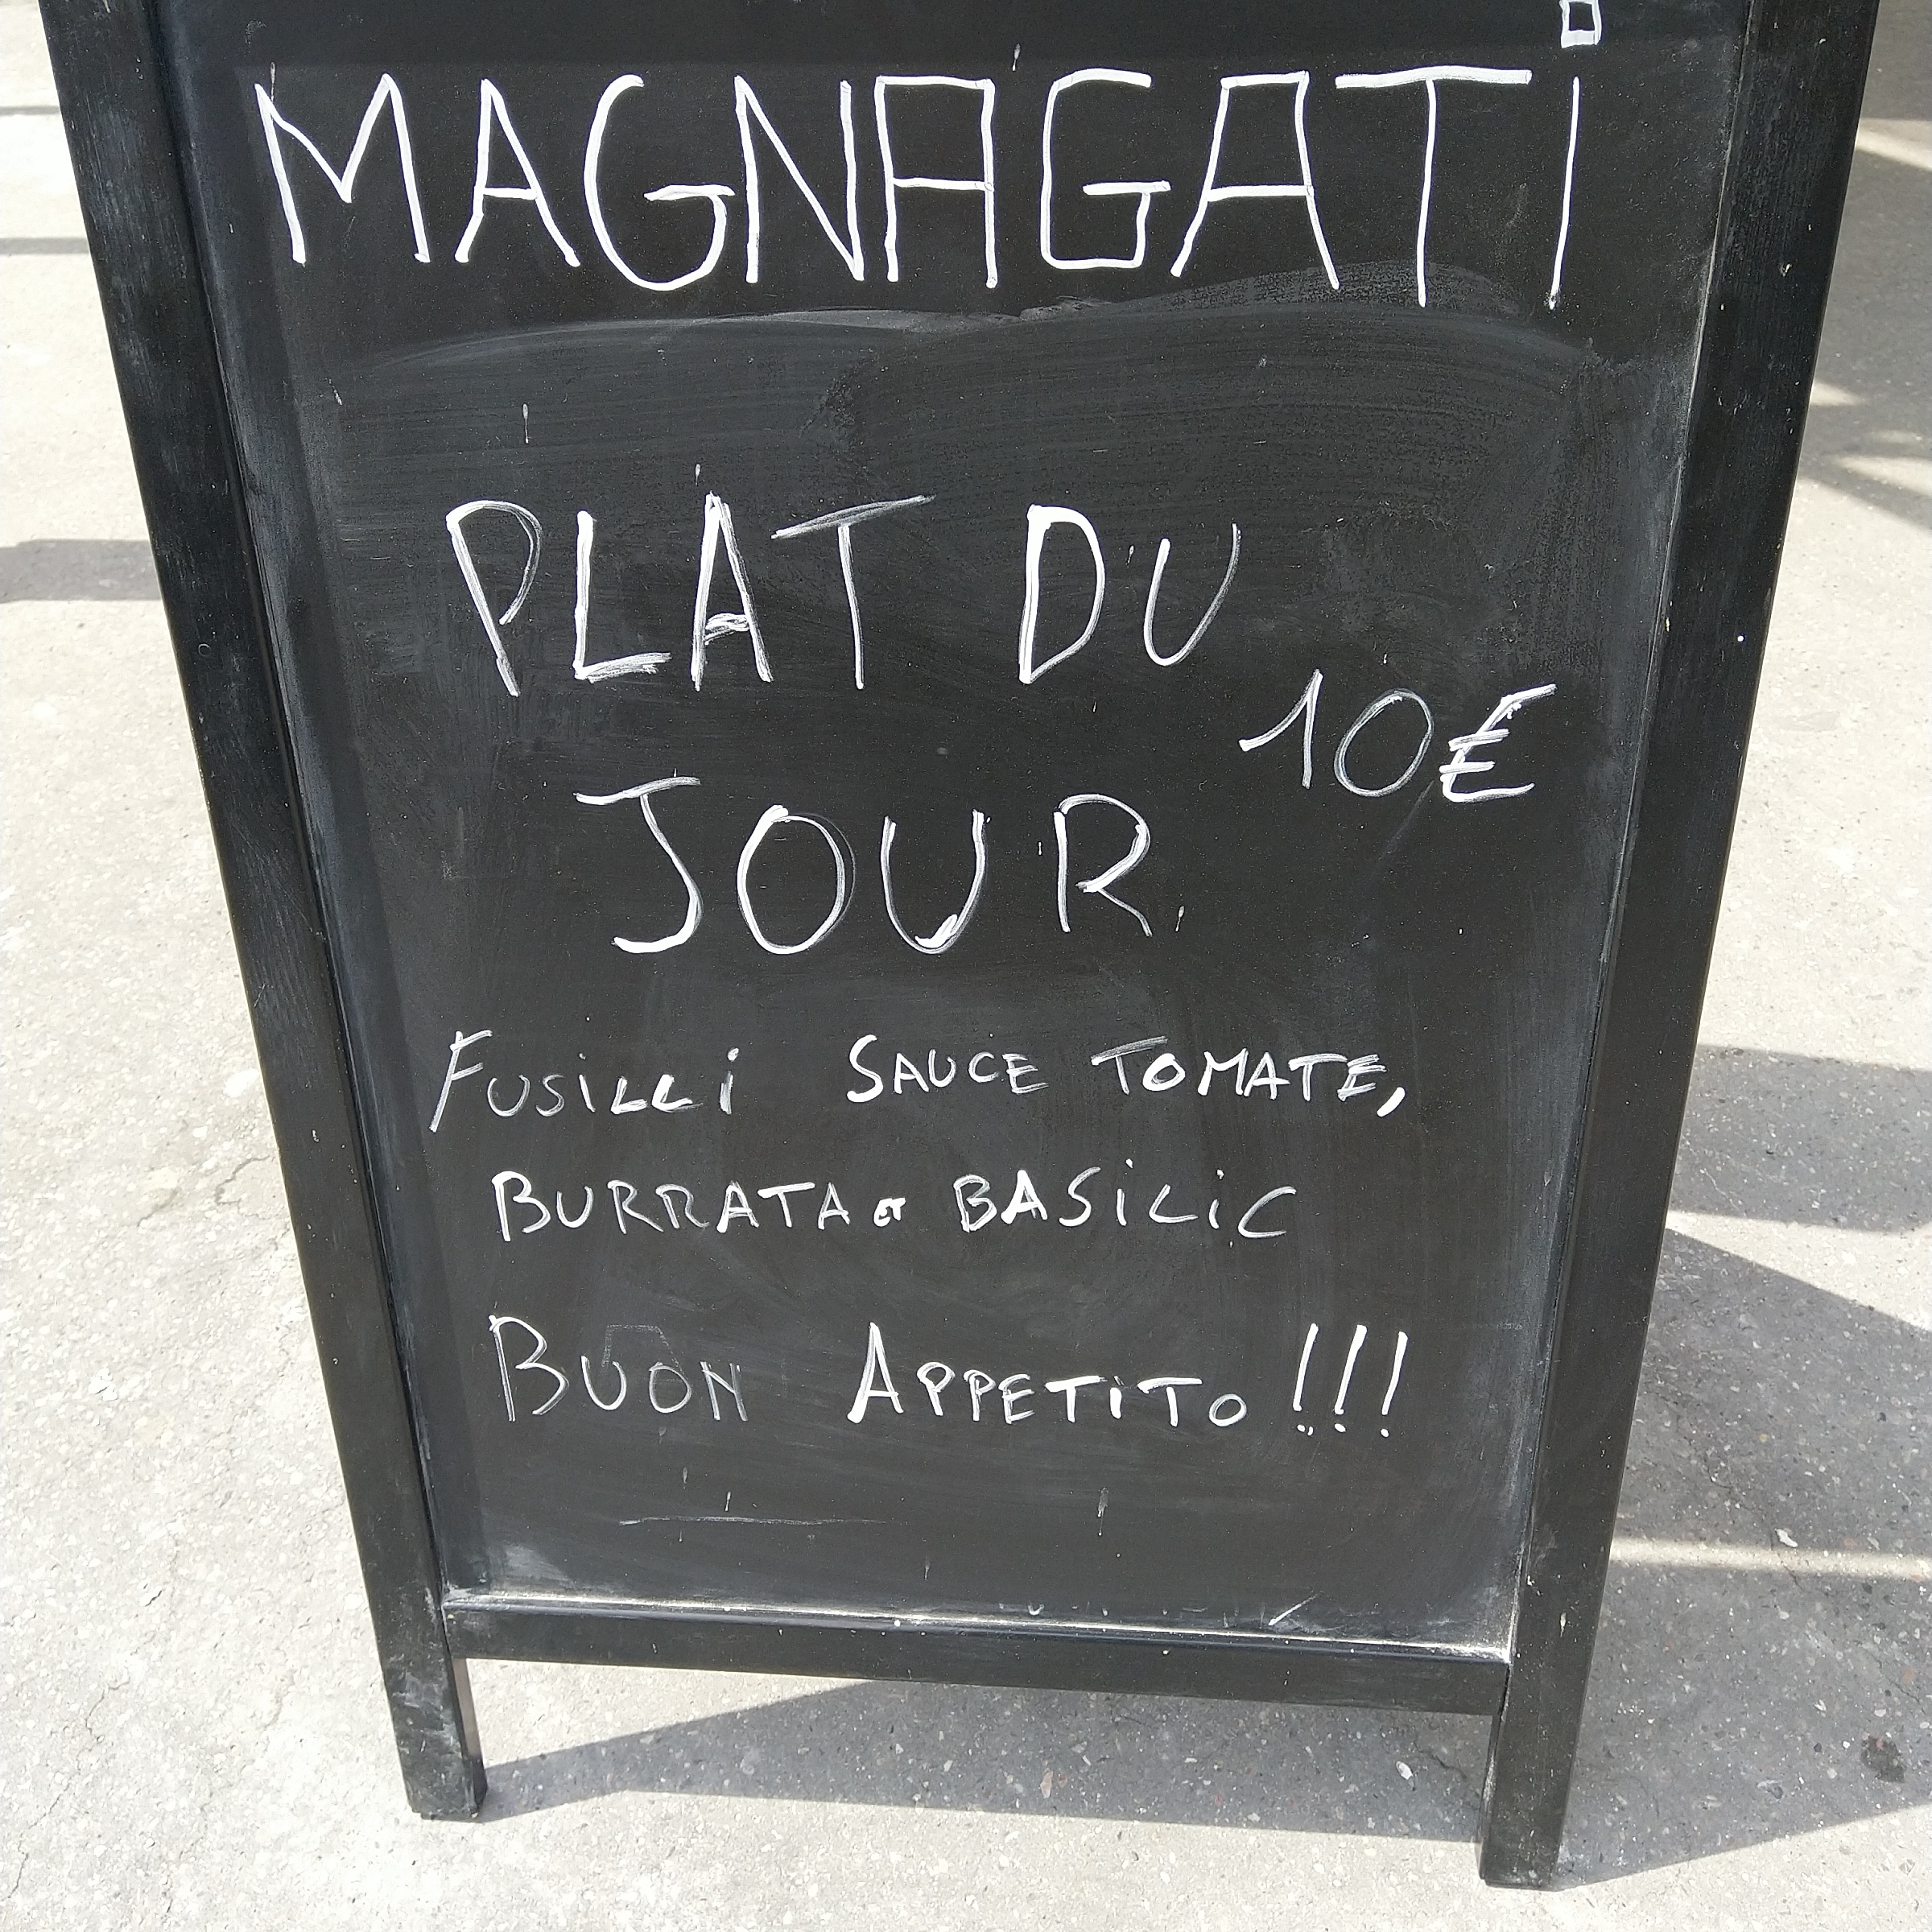 MAGNAGATi
PLAT DU
10€
JOUR
FUSiLLi SAUCE TOMATE,
BURRATA ET BASiLiC
BUON APPETiTO !!!